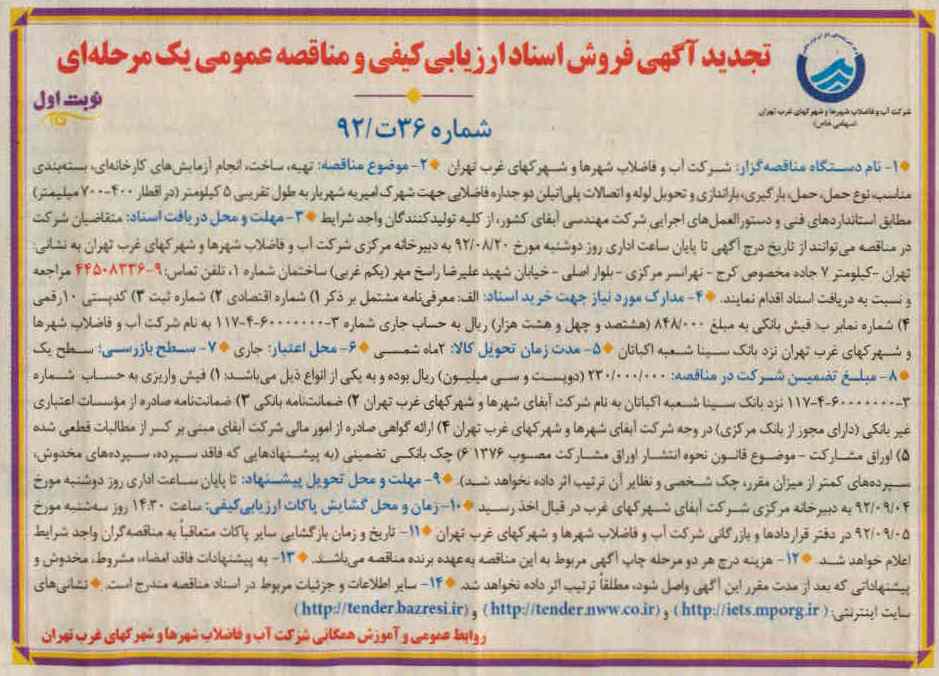 تجدید آگهی فروش اسناد ارزیابی کیفی و مناقصه عمومی یک مرحله‌ای
شرکت آب و فاضلاب شهرها و شهرکهای غرب تهران
(سهامی خاص)
نوبت اول
شماره ۳۶ت/۹۲
۱- نام دستگاه مناقصه‌گزار: شرکت آب و فاضلاب شهرها و شهرکهای غرب تهران ۲- موضوع مناقصه: تهیه، ساخت، انجام آزمایش‌های کارخانه‌ای، بسته‌بندی
مناسب، نوع حمل، حمل، بارگیری، باراندازی و تحویل لوله و اتصالات پلی‌اتیلن دو جداره فاضلابی جهت شهرک امیریه شهریار به طول تقریبی ۵ کیلومتر (در اقطار ۴۰۰-۷۰۰ میلیمتر)
مطابق استانداردهای فنی و دستورالعمل‌های اجرایی شرکت مهندسی آبفای کشور، از کلیه تولیدکنندگان واجد شرایط ۳- مهلت و محل دریافت اسناد: متقاضیان شرکت
در مناقصه می‌توانند از تاریخ درج آگهی تا پایان ساعت اداری روز دوشنبه مورخ ۹۲/۰۸/۲۰ به دبیرخانه مرکزی شرکت آب و فاضلاب شهرها و شهرکهای غرب تهران به نشانی:
تهران -کیلومتر ۷ جاده مخصوص کرج - تهرانسر مرکزی - بلوار اصلی - خیابان شهید علیرضا راسخ مهر (یکم غربی) ساختمان شماره ۱، تلفن تماس: ۹-۴۴۵۰۸۳۳۶ مراجعه
و نسبت به دریافت اسناد اقدام نمایند. ۴- مدارک مورد نیاز جهت خرید اسناد: الف: معرفی‌نامه مشتمل بر ذکر ۱) شماره اقتصادی ۲) شماره ثبت ۳) کدپستی ۱۰رقمی
۴) شماره نمابر ب: فیش بانکی به مبلغ ۸۴۸/۰۰۰ (هشتصد و چهل و هشت هزار) ریال به حساب جاری شماره ۳-۶۰۰۰۰۰۰۰-۴-۱۱۷ به نام شرکت آب و فاضلاب شهرها
و شهرکهای غرب تهران نزد بانک سینا شعبه اکباتان ۵- مدت زمان تحویل کالا: ۲ماه شمسی ۶- محل اعتبار: جاری ۷- سطح بازرسی: سطح یک
۸- مبلغ تضمین شرکت در مناقصه: ۲۳۰/۰۰۰/۰۰۰ (دویست و سی میلیون) ریال بوده و به یکی از انواع ذیل می‌باشد: ۱) فیش واریزی به حساب شماره
۳-۶۰۰۰۰۰۰۰-۴-۱۱۷ نزد بانک سینا شعبه اکباتان به نام شرکت آبفای شهرها و شهرکهای غرب تهران ۲) ضمانت‌نامه بانکی ۳) ضمانت‌نامه صادره از مؤسسات اعتباری
غیر بانکی (دارای مجوز از بانک مرکزی) در وجه شرکت آبفای شهرها و شهرکهای غرب تهران ۴) ارائه گواهی صادره از امور مالی شرکت آبفای مبنی بر کسر از مطالبات قطعی شده
۵) اوراق مشارکت - موضوع قانون نحوه انتشار اوراق مشارکت مصوب ۱۳۷۶ ۶) چک بانکی تضمینی (به پیشنهادهایی که فاقد سپرده، سپرده‌های مخدوش،
سپرده‌های کمتر از میزان مقرر، چک شخصی و نظایر آن ترتیب اثر داده نخواهد شد). ۹- مهلت و محل تحویل پیشنهاد: تا پایان ساعت اداری روز دوشنبه مورخ
۹۲/۰۹/۰۴ به دبیرخانه مرکزی شرکت آبفای شهرکهای غرب تهران در قبال اخذ رسید ۱۰- زمان و محل گشایش پاکات ارزیابی‌کیفی: ساعت ۱۴:۳۰ روز سه‌شنبه مورخ
۹۲/۰۹/۰۵ در دفتر قراردادها و بازرگانی شرکت آب و فاضلاب شهرها و شهرکهای غرب تهران ۱۱- تاریخ و زمان بازگشایی سایر پاکات متعاقباً به مناقصه‌گران واجد شرایط
اعلام خواهد شد. ۱۲- هزینه درج هر دو مرحله چاپ آگهی مربوط به این مناقصه به‌عهده برنده مناقصه می‌باشد. ۱۳- به پیشنهادات فاقد امضاء، مشروط، مخدوش و
پیشنهاداتی که بعد از مدت مقرر این آگهی واصل شود، مطلقاً ترتیب اثر داده نخواهد شد. ۱۴- سایر اطلاعات و جزئیات مربوط در اسناد مناقصه مندرج است. نشانی‌های
سایت اینترنتی: (http://iets.mporg.ir) و (http://tender.nww.co.ir) و (http://tender.bazresi.ir)
روابط عمومی و آموزش همگانی شرکت آب و فاضلاب شهرها و شهرکهای غرب تهران